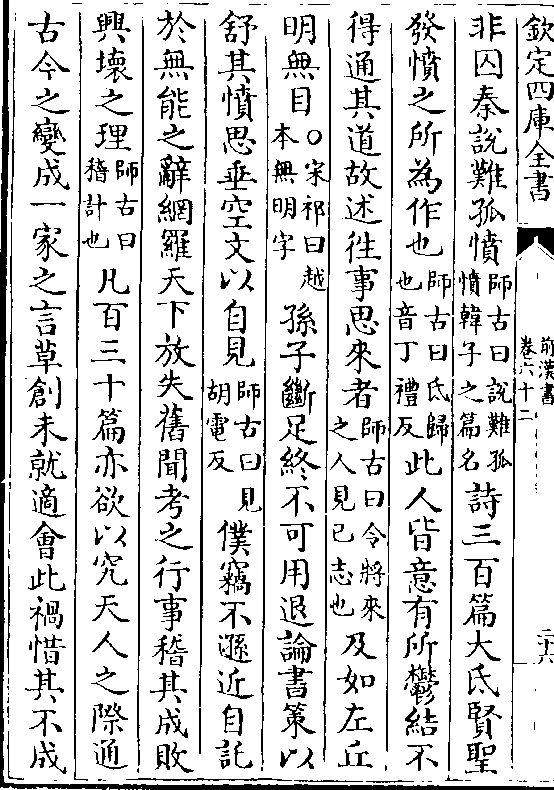 欽定四庫全書
前漢書
卷六十二
非囚秦說難孤憤師古曰說難孤憤韓子之篇名詩三百篇大氐賢聖
發憤之所為作也師古曰氐歸也音丁禮反此人皆意有所鬱結不
得通其道故述徃事思來者師古曰令將來之人見已志也及如左丘
明無目○宋祁曰越本無明字孫子斷足終不可用退論書策以
舒其憤思垂空文以自見師古曰見胡電反僕竊不遜近自託
於無能之辭網羅天下放失舊聞考之行事稽其成敗
興壞之理師古曰稽計也凡百三十篇亦欲以究天人之際通
古今之變成一家之言草創未就適會此禍惜其不成